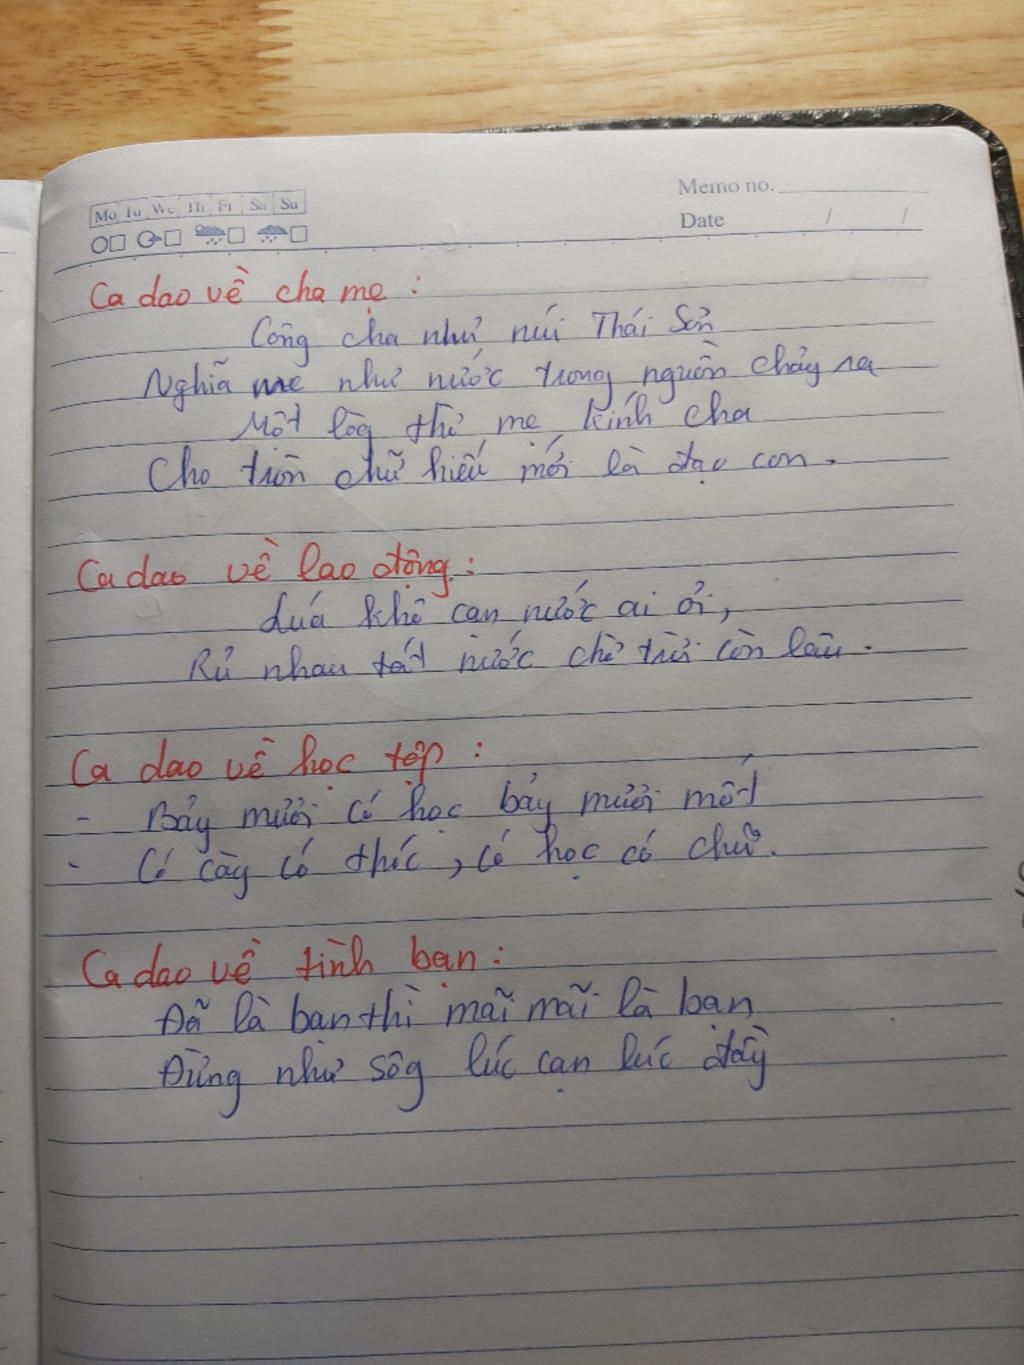 Mo Tu We Th Fr Sa Su
Memo no.
Date / /
Ca dao về cha mẹ :
Công cha như núi Thái Sơn
Nghĩa mẹ như nước trong nguồn chảy ra
Một lòg thờ mẹ kính cha
Cho tròn chữ hiếu mới là đạo con.
Ca dao về lao động :
Lúa khô cạn nước ai ơi,
Rủ nhau tát nước chờ trời còn lâu.
Ca dao về học tập :
- Bảy mươi có học bảy mươi mốt
- Có cày có thóc, có học có chữ.
Ca dao về tình bạn :
Đã là bạn thì mãi mãi là bạn
Đừng như sôg lúc cạn lúc đầy